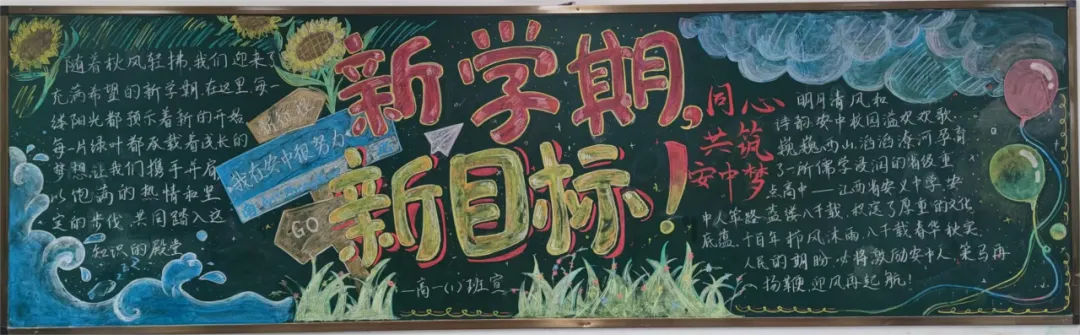 随着秋风轻拂,我们迎来了
充满希望的新学期.在这里,每一
缕阳光都预示着新的开始
每一片绿叶都承载着成长的
梦想.让我们携手并肩
以饱满的热情和坚
定的步伐 共同踏入这
知识的殿堂
我在安中很努力
GO
新学期,
新目标!
高一(1)班宣
同心
共筑
安中梦
明月清风和
诗韵,安中校园溢欢歌.
巍巍西山,滔滔潦河孕育
了一所儒学浸润的省级重
点高中——江西省安义中学,安
中人筚路蓝缕八千载,积淀了厚重的文化
底蕴.十百年栉风沐雨,八千载春华秋实
人民的期盼,必将激励安中人,策马再
扬鞭,迎风再起航!